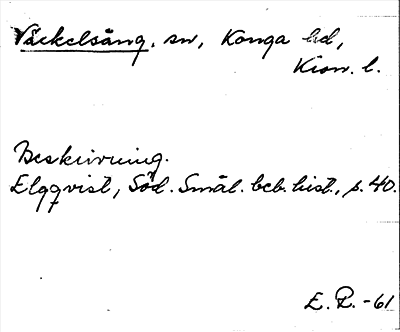 Väckelsång. sn, Konga hd,
Kron. l.
Beskrivning.
Elgqvist, Söd. Smål. beb. hist., p. 40.
E. P. -61